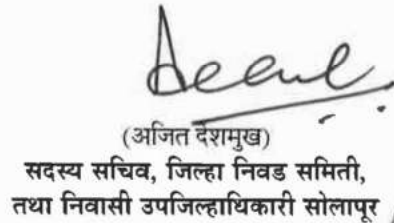 (अजित देशमुख)
सदस्य सचिव, जिल्हा निवड समिती,
तथा निवासी उपजिल्हाधिकारी सोलापूर